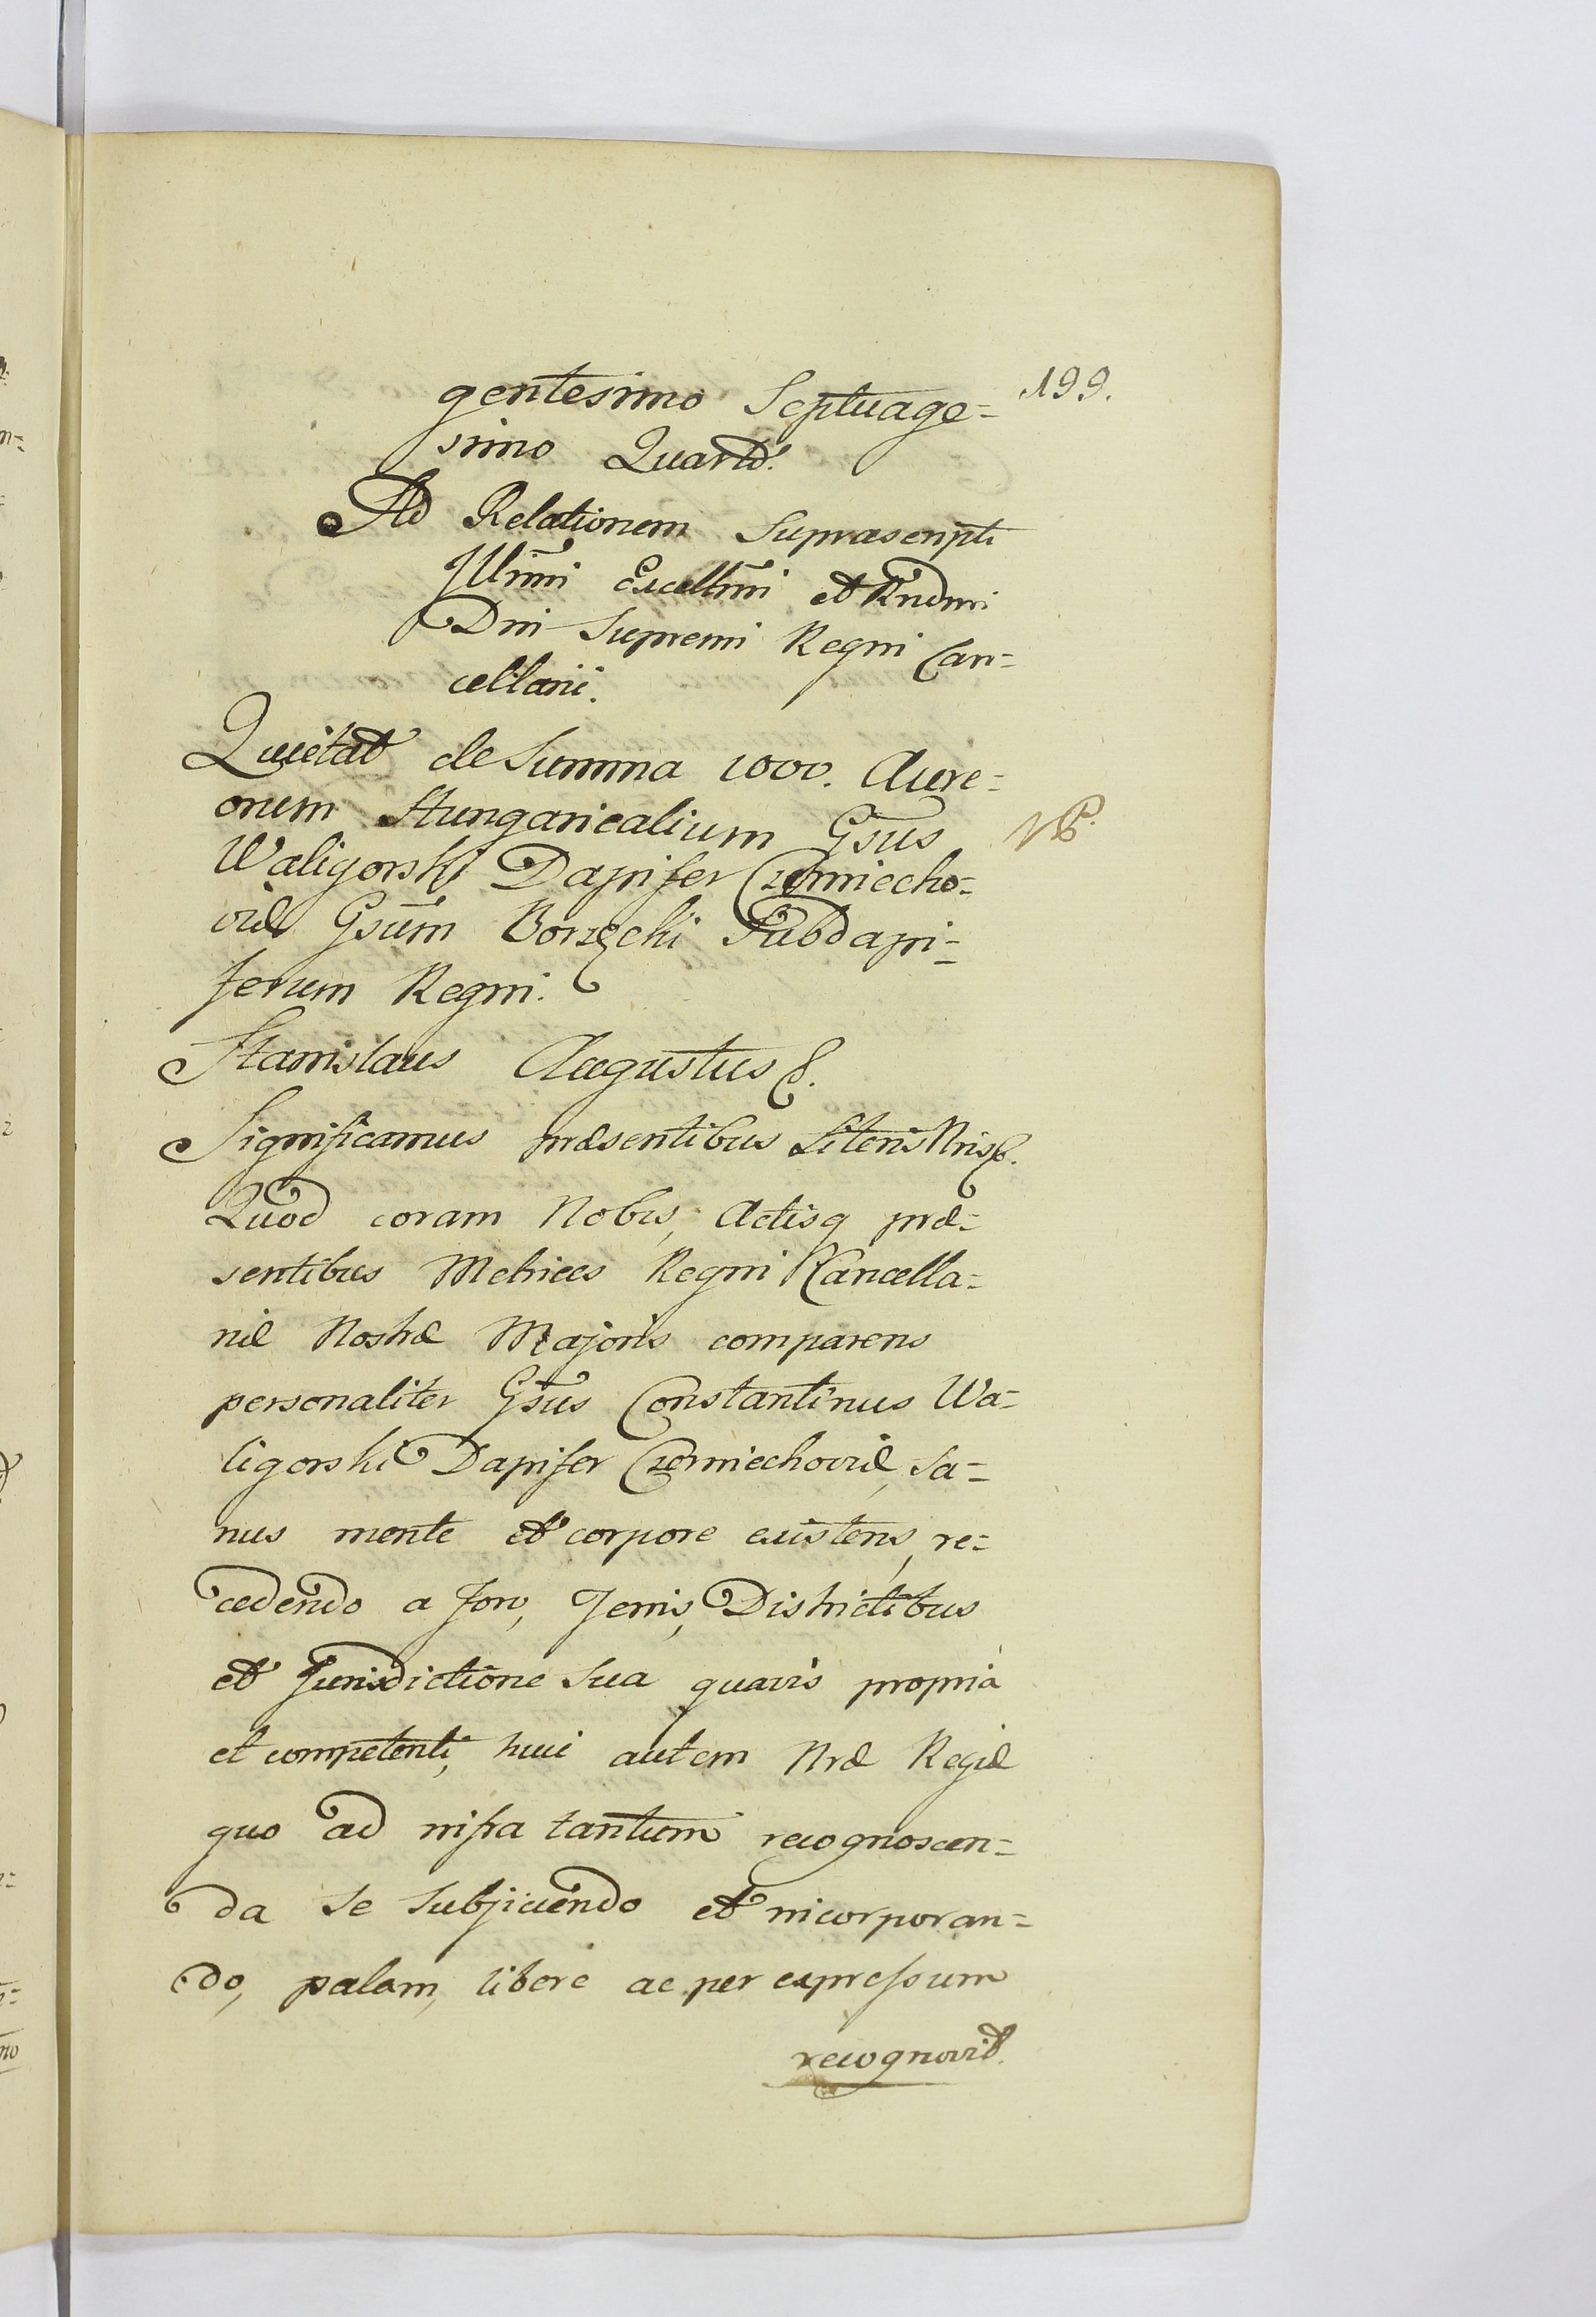 gentesimo Septuage= 199.
simo Quarto.
Ad Relationem Suprascripti
Illmi Excellmi et Rndmi
Dni Supremi Regni Can=
cellarii.
Quietat de Summa 1000. Aure=
orum Hungaricalium Gsus
Waligorski Dapifer Czerniecho=
viæ Gsum Borzęcki Subdapi=
ferum Regni.
Stanislaus Augustus &.
Significamus præsentibus Literis Nris &.
Quod coram Nobis, Actisq præ=
sentibus Metrices Regni Cancella=
riæ Nostræ Majoris comparens
personaliter Gsus Constantinus Wa=
ligorski Dapifer Czerniechoviæ, Sa=
nus mente et corpore existens, re=
cedendo a foro, Terris, Districtibus
et Jurisdictione Sua quavis propriâ
et competenti, huic autem Nræ Regiæ
quo ad infra tantum recognoscen=
da se Subjiciendo et incorporan=
do, palam, libere ac per expressum
recognovit.